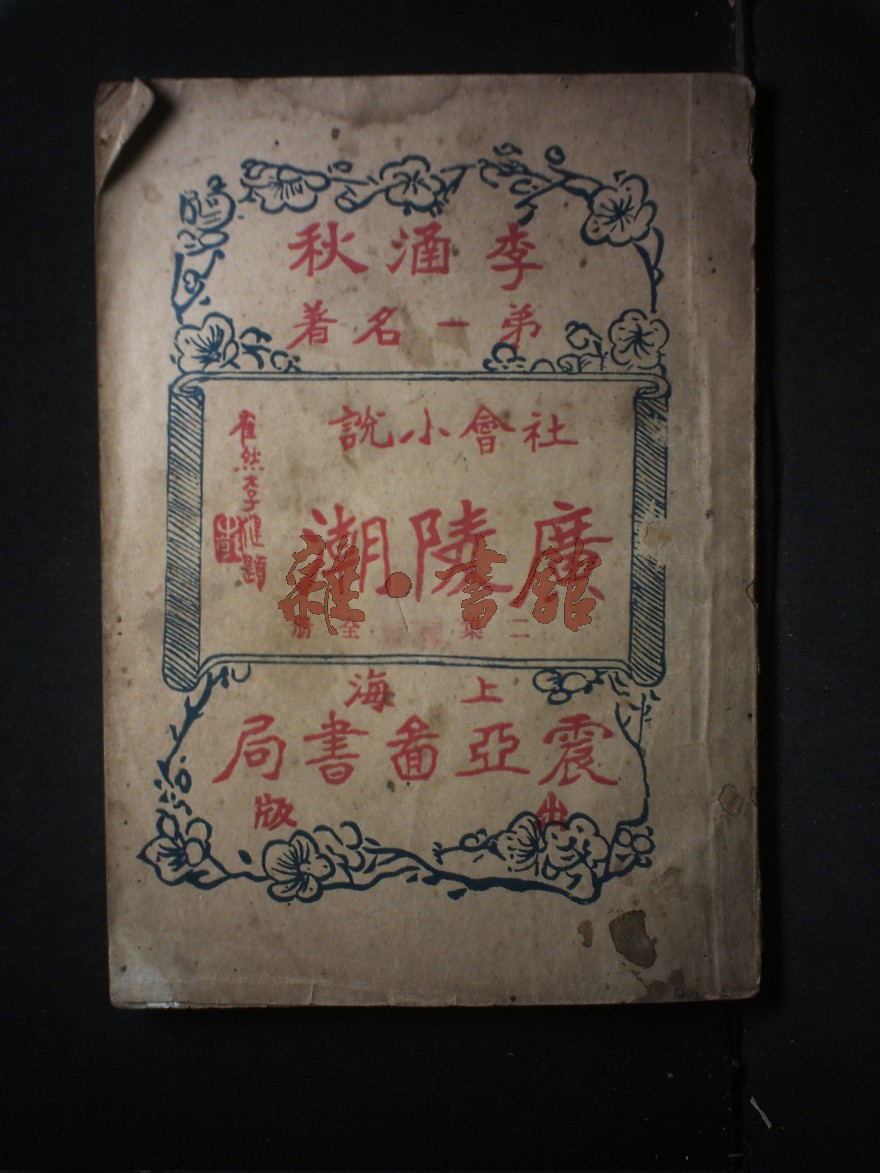 李涵秋
弟一名著
社會小說
廣陵潮
二集 全册
題
雜·書館
上海
震亞啚書局
出版